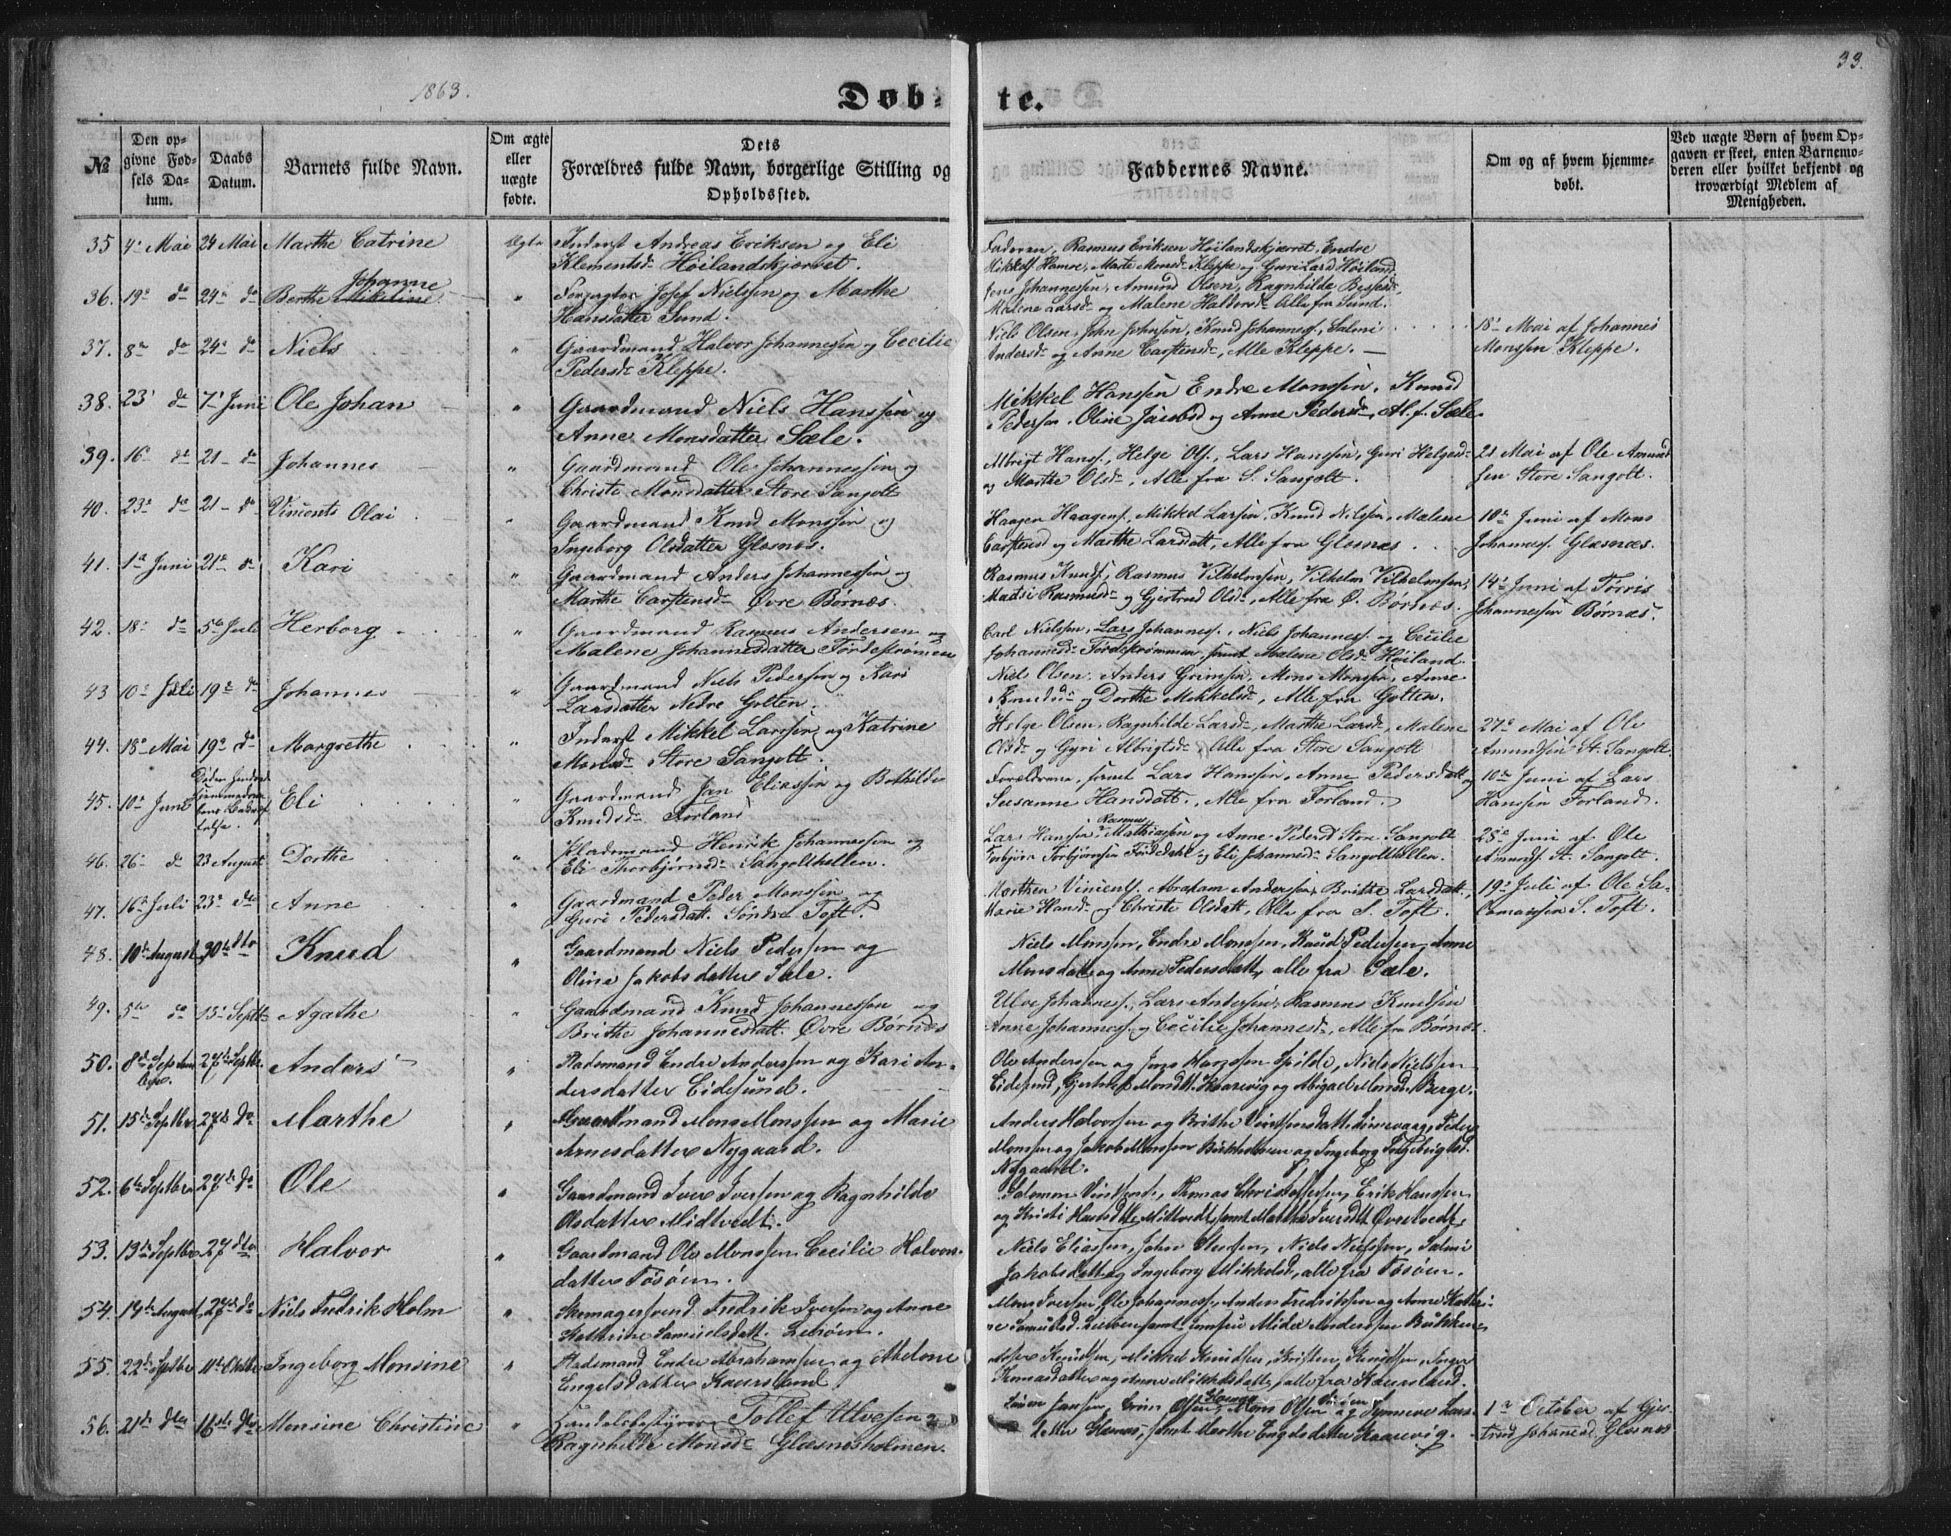 1863.
33.
Døbte.
№
Den opgivne Fødsels Datum.
Daabs Datum.
Barnets fulde Navn.
Om ægte eller uægte fødte.
Dets Forældres fulde Navn, borgerlige Stilling og Opholdssted.
Faddernes Navne.
Om og af hvem hjemmedøbt.
Ved uægte Børn af hvem Opgaven er skeet, enten Barnemoderen eller hvilket bekjendt og troværdigt Medlem af Menigheden.
35 4 Mai 24 Mai Marthe Catrine Ægte Inderst Andreas Eriksen og Eli
Klementsd Høilandskjærret.
Faderen, Rasmus Eriksen Høilandskjærret, Endre
Hamre, Marte Monsd Kleppe og Guri Larsd Høiland
36. 19 do 24 do Berthe Mikeline Johanne " Josef Nielsen og Marthe
Hansdatter Sund.
Jens Johannessen, Amund Olsen, Ragnhilde
Malene Larsd og Malene Haldorsd Alle fra Sund.
37. 8 do 24 do Niels " Gaardmand Halvor Johannessen og Cecilie
Pedersd Kleppe.
Niels Olsen, John Johnsen, Knud Johanness, Salmi
Andersd og Anne Carstensd, Alle Kleppe.
18 Mai af Johannes
Monssen Kleppe.
38. 23 do 7 Juni Ole Johan " Gaardmand Niels Hanssen og
Anne Monsdatter Sæle.
Mikkel Hanssen Endre Monssen, Knud
Pederssen, Oline Jacobsd og Anne Pedersd, Al. f. Sæle
39. 16 do 21 do Johannes " Gaardmand Ole Johannessen og
Christi Monsdatter Store Sangolt
Albrigt Hans, Helge Ols, Lars Hanssen, Guri Helgesd
og Marthe Olsd, Alle fra S. Sangolt.
21 Mai af Ole Amund
sen Store Sangolt.
40. 23 do 21 do Vincents Olai " Gaardmand Knud Monssen og
Ingeborg Olsdatter Glæsnes.
Haagen Haagens, Mikkel Larsen, Knud Nilssen, Malene
Carstensd og Marthe Larsdatt, Alle fra Glesnæs
10 Juni af Mons
Johanness. Glæsnæs.
41. 1 Juni 21 do Kari " Gaardmand Anders Johannessen og
Marthe Carstensd Øvre Børnæs.
Rasmus Knuds, Rasmus Vilhelmsen, Vilhelm Vilhelmsen,
Madsi Rasmusd og Gjertrud Olsd, Alle fra Ø. Børnæs.
14 Juni af Tørris
Johannessen Børnæs.
42. 18 do 5 Juli Herborg " Gaardmand Rasmus Andersen og
Malene Johannesdatter Førdestrømen
Carl Nielssen, Lars Johanness., Niels Johanness. og Cecilie
Johannesd Førdestrømmen, samt Malene Olsd Høiland
43 10 Juli 19 do Johannes " Gaardmand Niels Pederssen og Kari
Larsdatter Nedre Golten.
Niels Olsen, Anders Grimsen, Mons Monsen, Anne
Knudsd og Dorthe Mikkelsd, Alle fra Golten.
44. 18 Mai 19 do Margrethe " Inderst Mikkel Larssen og Katrine
Monsd Store Sangolt.
Helge Olsen, Ragnhilde Larsd, Marthe Larsd, Malene
Olsd og Gyri Albrigtsd, Alle fra Store Sangolt
27 Mai af Ole
Amundsen St. Sangolt.
45. 10 Juni Eli " Gaardmand Jan Eliassen og Bothilde
Knudsd Forland
Forældrene, samt Lars Hanssen, Anne Pedersdatt og
Susanne Hansdatt., Alle fra Forland.
10 Juni af Lars
Hanssen Forland.
46. 26 do 23 August Dorthe " Henrik Johannessen og
Eli Thorbjørnsd Sangolthellen.
Lars Hanssen, Rasmus Mathiassen og Anne Pedersd Store Sangolt
Torbjørn Torbjørnsen Førdedahl og Eli Johannesd Sangolthellen.
25 Juni af Ole
Amunds. St. Sangolt.
47. 16 Juli 23 do Anne " Gaardmand Peder Monssen og
Guri Pedersdatt. Søndre Toft.
Morthen Vincents, Abraham Anderssen, Brithe Larsdatt,
Marie Hansd og Christi Olsdatt, Alle fra S. Toft.
19 Juli af Ole Sa-
lomonssen S. Toft.
48. 10de August 30te dto Knud " Gaardmand Niels Pederssen og
Oline Jakobsdatter Sæle.
Niels Monsen, Endre Monssen, Knud Pedersen, Anne
Monsdatt og Anne Pedersdatt, alle fra Sæle.
49. 5te do 13 Septb Agathe " Gaardmand Knud Johannessen og
Brithe Johannesdatt. Øvre Børnæs
Ulve Johanness., Lars Andersen, Rasmus Knudsen
Anne Johanness og Cecilie Johannesd, Alle fra Børnæs.
50. 8de Septem 27de Septbr. Anders " Pladsmand Endre Anderssen og Kari An-
dersdatter Eidesund.
Ole Anderssen og Jens Hanssen Spilde, Niels Nielssen
Eidesund, Gjertrud Monsdt. Kaarevig og Abigael Monsd. Berge.
51. 15de Septbr 27de do Marthe " Gaardmand Mons Monssen og Marie
Arnesdatter Nygaard.
Anders Halvorssen og Brithe Peder
Monsen og Jakob Monsen og Ingeborg
Nygaard.
52. 6te Septbr 27de do Ole " Gaardmand Iver Iversen og Ragnhilde
Olsdatter Midtvedt.
Salomon Vintsent, Thomas Christoffersen, Erik Hanssen
og Kristi Hansdtt Midtvedt, samt Marthe Iversdtt Øvretvedt.
53. 13de Septbr 27 dto Halvor " Gaardmand Ole Monssen, Cecilie Halvors-
datter Tøsøen.
Niels Eliassen, John Niels Nielssen, Salmi
Jakobsdatt og Ingeborg Mikkelsd, alle fra Tøsøen.
54. 14de August 27de do Niels Fredrik Holm " Fredrik Iversen og Anne
Kathrine Samuelsdatt. Lerøen.
Mons Iversen, Ole Johanness, Anders Fredrikssen og Anne Kathri-
ne Samuelsd.
55. 22de Septbr 11te Oktbr Ingeborg Monsine " Pladsmand Endre Abrahamsen og Madene
Engelsdatter Kausland.
Knudsen, Mikkel Knudsen, Kristen Knudsen, Inger
alle fra Kausland.
56. 21de dto 18de dto Monsine Christine " Tollef Ulvesen
Ragnhilde Monsd Glæsnesholmen.
Mons Olsen og Synneve Lars-
datter Glesnæs, samt Marthe Engelsdatter Kaarevig.
1 October af Gjer-
trud Johannesd Glesnæs